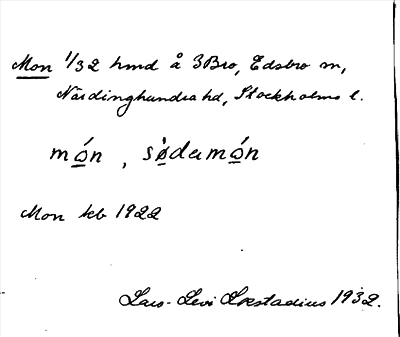 Mon 1/32 hmd å 3Bro, Edsbro sn,
Närdinghundra hd, Stockholms l.
mó̲n, sø̲̀damó̲n
Mon kb 1922
Lars-Levi Læstadius 1932.